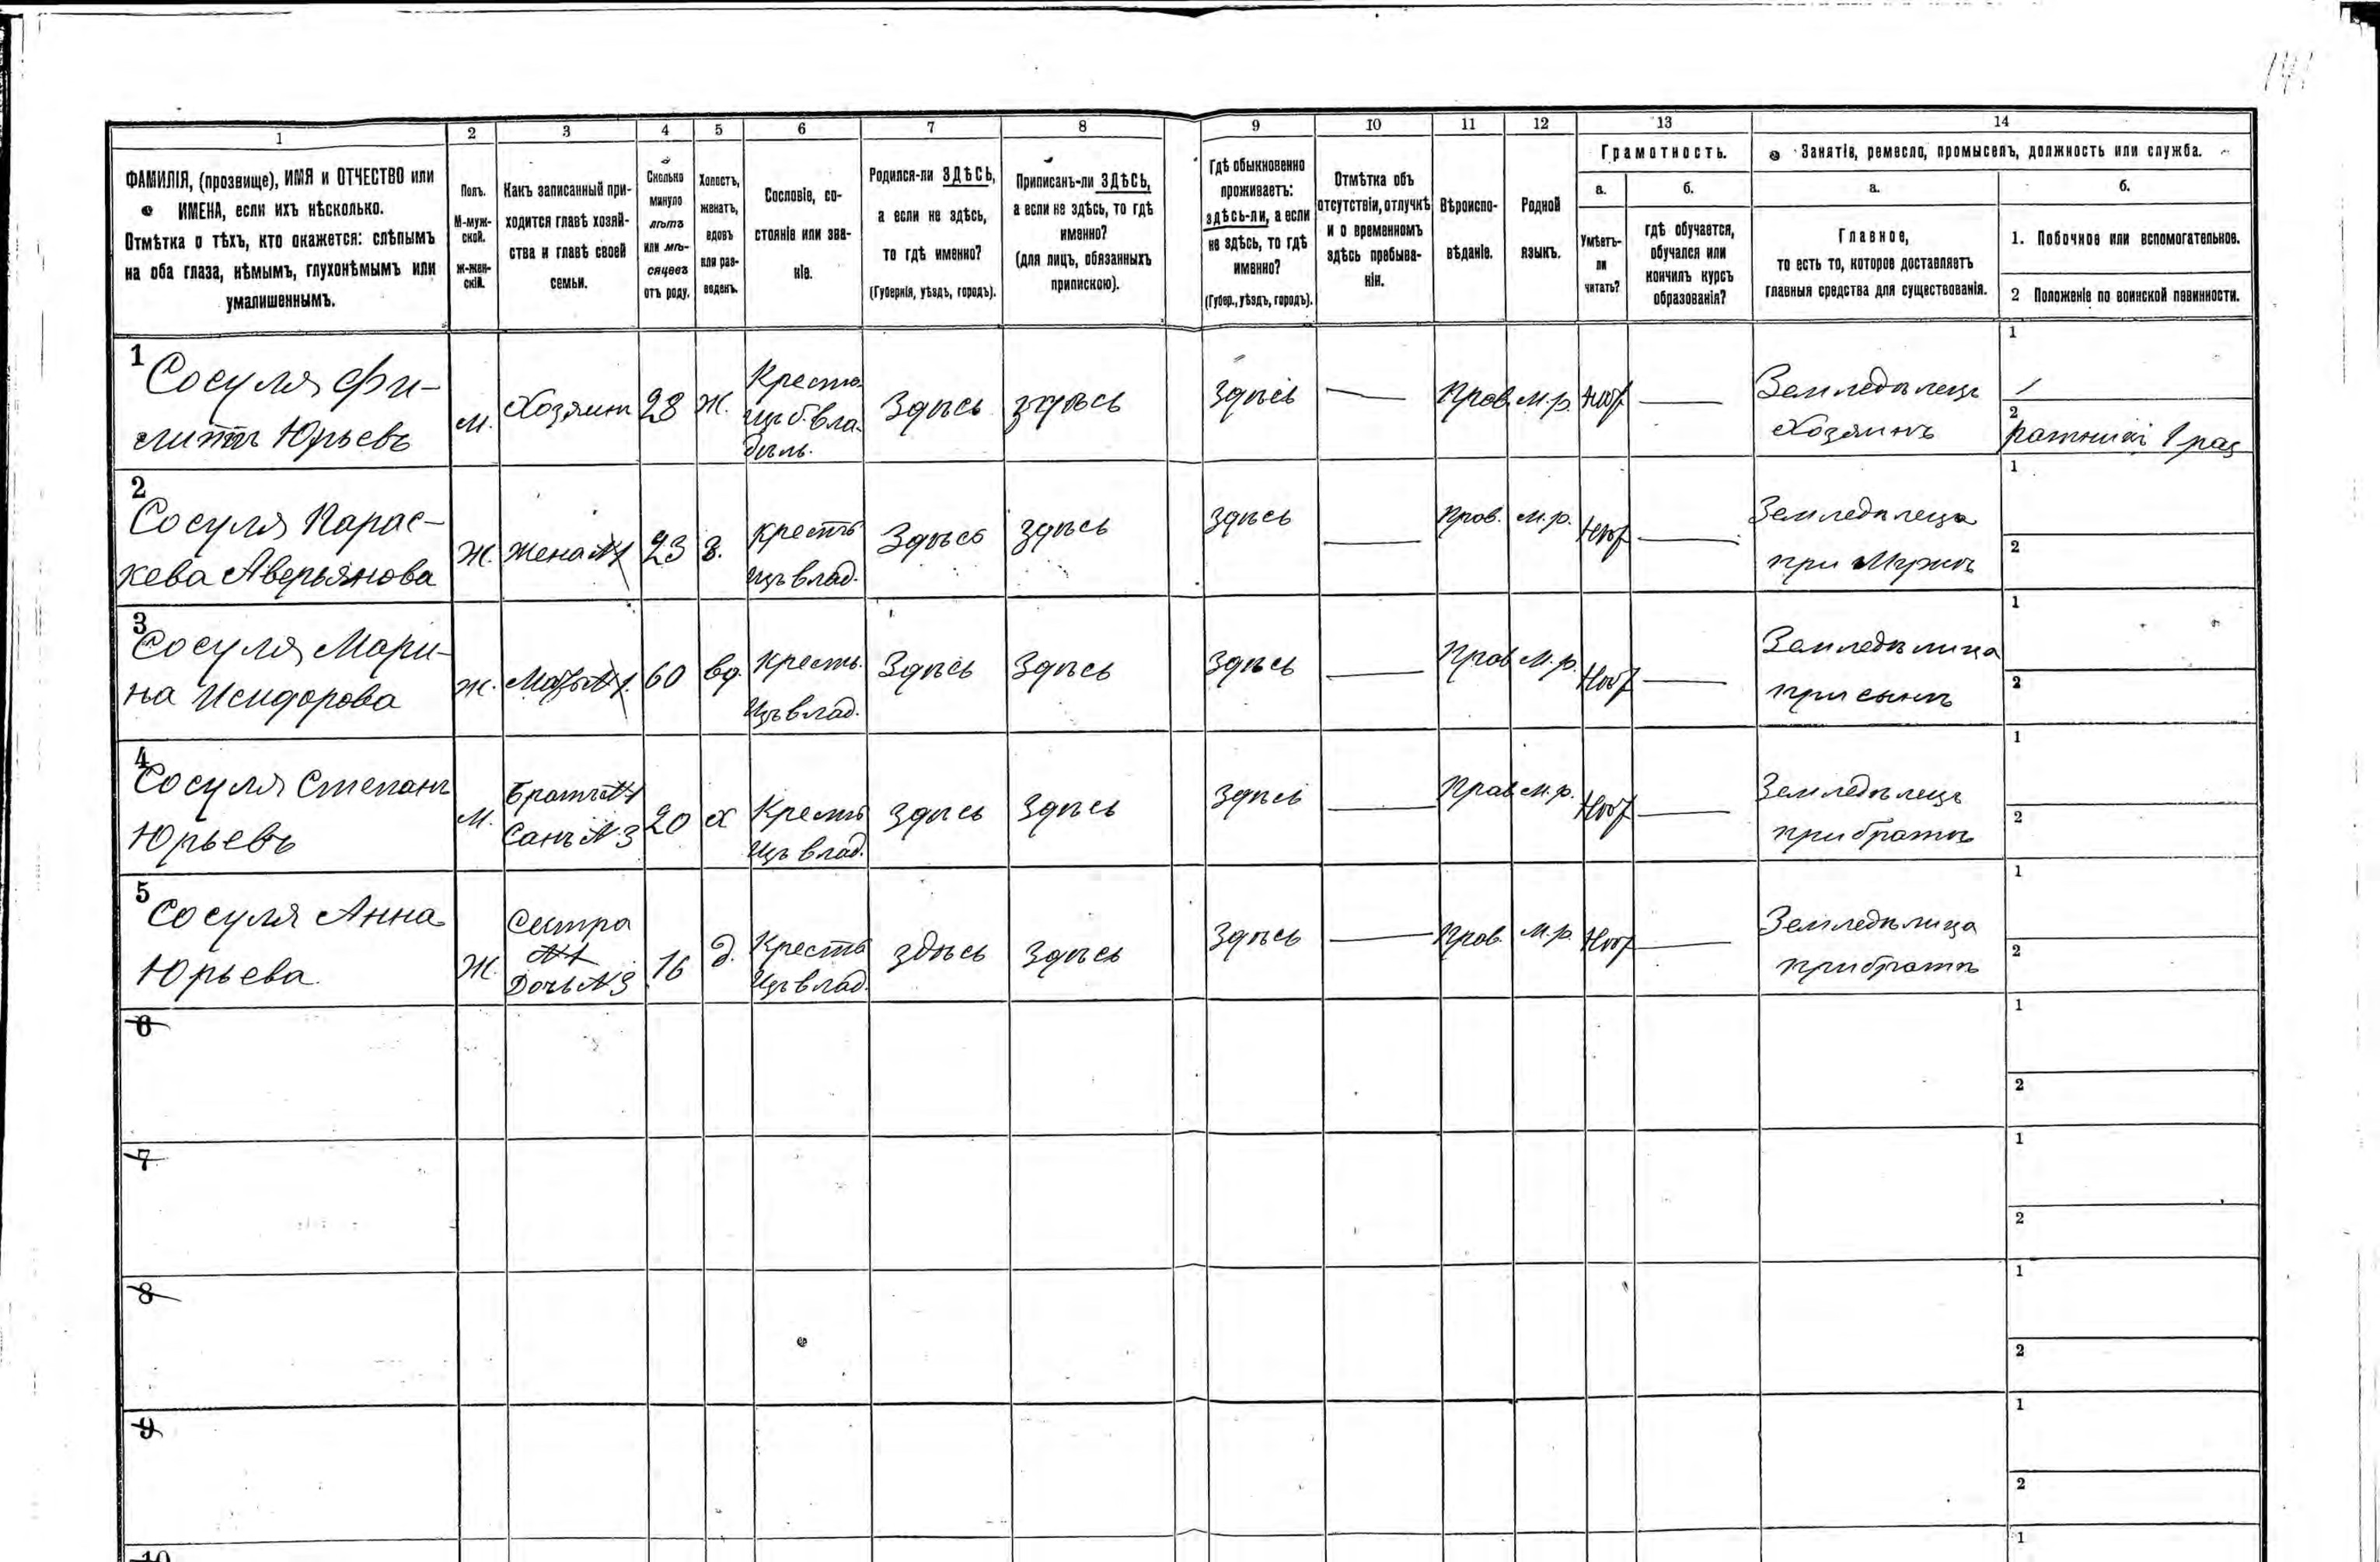 141
1 2 3 4 5 6 7 8 9 10 11 12 13 14
ФАМИЛІЯ, (прозвище), ИМЯ и ОТЧЕСТВО или
ИМЕНА, если ихъ нѣсколько.
Отмѣтка о тѣхъ, кто окажется: слѣпымъ
на оба глаза, нѣмымъ, глухонѣмымъ или
умалишеннымъ.
Полъ.
М-муж-
ской.
Ж-жен-
скій.
Какъ записанный при-
ходится главѣ хозяй-
ства и главѣ своей
семьи.
Сколько
минуло
лѣтъ
или мѣ-
сяцевъ
отъ роду.
Холостъ,
женатъ,
вдовъ
или раз-
веденъ.
Сословіе, со-
стояніе или зва-
ніе.
Родился-ли ЗДѢСЬ,
а если не здѣсь,
то гдѣ именно?
(Губернія, уѣздъ, городъ).
Приписанъ-ли ЗДѢСЬ,
а если не здѣсь, то гдѣ
именно?
(для лицъ, обязанныхъ
припискою).
Гдѣ обыкновенно
проживаетъ:
здѣсь-ли, а если
не здѣсь, то гдѣ
именно?
(Губер., уѣздъ, городъ).
Отмѣтка объ
отсутствіи, отлучкѣ
и о временномъ
здѣсь пребыва-
ніи.
Вѣроиспо-
вѣданіе.
Родной
языкъ.
Грамотность.
а.
Умѣетъ-
ли
читать?
б.
гдѣ обучается,
обучался или
кончилъ курсъ
образованія?
Занятіе, ремесло, промыселъ, должность или служба.
а.
Главное,
то есть то, которое доставляетъ
главныя средства для существованія.
б.
1. Побочное или вспомогательное.
2 Положеніе по воинской повинности.
1 Сосуля Фи-
липпъ Юрьевъ
М. Хозяинъ 28 Ж.
Крестья
цъ б. вла-
дѣль.
Здѣсь здѣсь здѣсь — Прав. м.р. —
Земледѣлецъ
Хозяинъ
1
2
ратникъ 1 раз
2
Сосуля Парас-
кева Аверьянова
Ж. Жена №1 23 З.
крестья
цъ влад.
Здѣсь здѣсь здѣсь — Прав. м.р. —
Земледѣлица
при Мужѣ
1
2
3
Сосуля Мари-
на Исидорова
Ж. Мать №1. 60 вд.
Кресть.
цъ влад.
Здѣсь Здѣсь Здѣсь — Прав м.р. —
Земледѣлица
при сынѣ
1
2
4
Сосуля Степанъ
Юрьевъ
М.
Братъ №1
Сынъ №3
20 х
Крестья
цъ влад.
Здѣсь Здѣсь Здѣсь — Прав м.р. —
Земледѣлецъ
при братѣ
1
2
5
Сосуля Анна
Юрьева.
Ж.
Сестра
№1
Дочь №3
16 д.
Крестья
цъ влад.
здѣсь Здѣсь Здѣсь — Прав. м.р. —
Земледѣлица
при братѣ
1
2
6
1
2
7
1
2
8
1
2
9
1
2
10
1